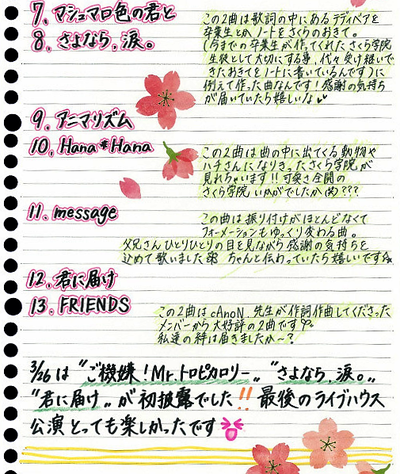 7. マシュマロ色の君と
8. さよなら、涙。
この2曲は歌詞の中にあるテディベアを
卒業生とか、ノートをさくらのおきて。
(今までの卒業生が作ってくれたさくら学院
生徒として大切にする事、代々受け継いで
きたおきてをノートに書いているんです)に
例えて作った曲なんです!感謝の気持ち
が届いていたら嬉しいな
9. アニマリズム
10. Hana*Hana
この2曲は曲の中に出てくる動物や
ハチさんになりきったさくら学院が
見れちゃいます!!可愛さ全開の
さくら学院いかがでしたか(笑)???
11. message
この曲は振り付けがほとんどなくて
フォーメーションもゆっくり変わる曲。
父兄さんひとりひとりの目を見ながら感謝の気持ちを
込めて歌いました ちゃんと伝わっていたら嬉しいです
12. 君に届け
13. FRIENDS
この2曲はcAnoN.先生が作詞作曲してくださった
メンバーから大好評の2曲です
私達の絆は届きましたか~?
3/26は"ご機嫌!Mr.トロピカロリー"、"さよなら、涙。"、
"君に届け"が初披露でした!!最後のライブハウス
公演とっても楽しかったです